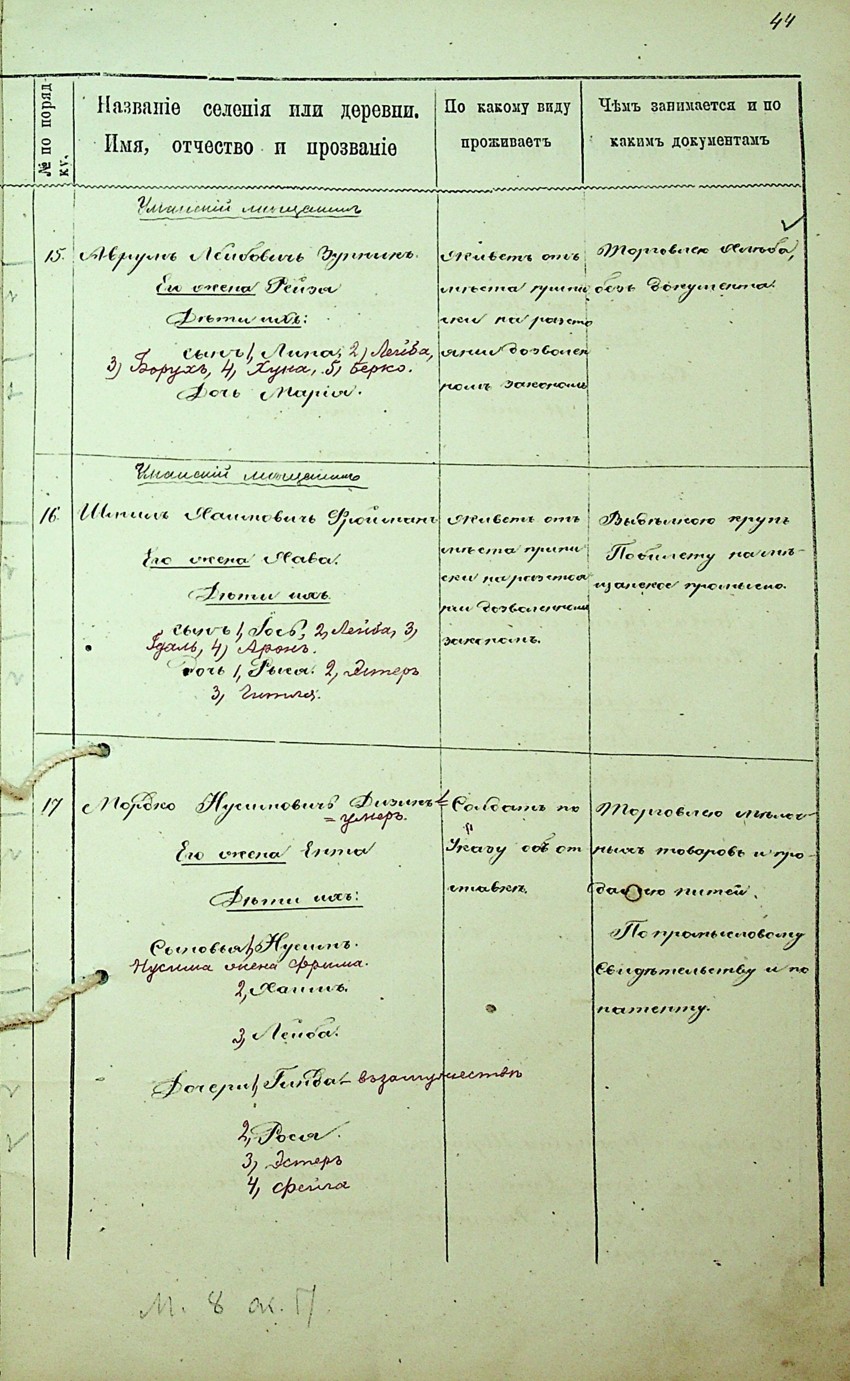 44
№ по поряд-
ку.
Названіе селенія или деревни.
Имя, отчество и прозваніе
По какому виду
проживаетъ
Чѣмъ занимается и по
какимъ документамъ
Уманскій мѣщанинъ
15. Аврумъ Лейбовичъ
Его жена Рейза
Дѣти ихъ:
сынъ 1, Липа, 2, Лейба,
3) Борухъ, 4, Хуна, 5, Берко.
Дочь Марія.
Живетъ отъ
мѣста припи
ски на разсто
яніи дозволен
номъ закономъ
Торговлею хлѣба,
безъ документа.
Уманскій мѣщанинъ
16. Шмилъ Хаимовичъ Фройманъ
Его жена Хава.
Дѣти ихъ
сынъ 1, Іось, 2, Лейба, 3,
Гдаль, 4) Аронъ.
Дочь 1, Рыся. 2, Эстеръ
3, Гитля.
Живетъ отъ
мѣста припи
ски на разстоя
ніи дозволенномъ
закономъ.
Выдѣлкою крупъ
По билету на мѣ-
щанскіе промыслы.
17 Мордко Нусимовичъ Дизикъ
= умеръ.
Его жена Ента
Дѣти ихъ:
Сыновья 1, Нусимъ.
Нусима жена Фрима.
2, Хаимъ.
3, Лейба.
Дочери 1, Гинда - въ замужествѣ
2, Рося.
3, Эстеръ
4, Фейга
Солдатъ по
Указу объ от
ставкѣ.
Торговлею мѣлоч-
ныхъ товаровъ и про-
дажею питей.
По промысловому
свидѣтельству и по
патенту.
М. 8 ж.